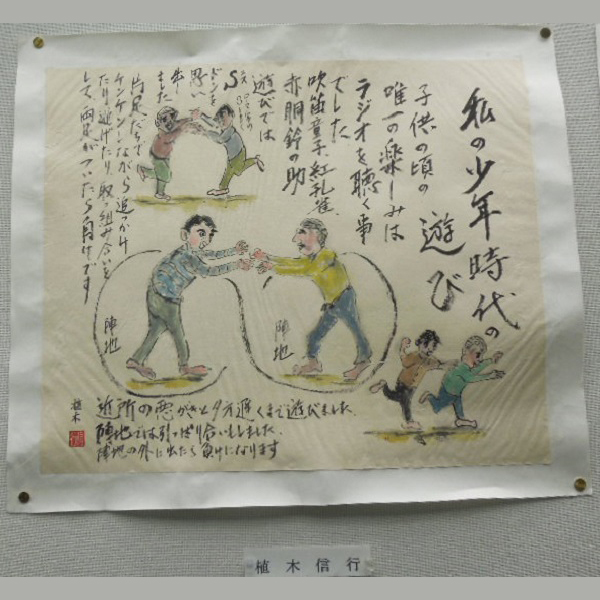 私の少年時代の
遊び
子供の頃の
唯一の楽しみは
ラジオを聴く事
でした
吹笛童子、紅孔雀、
赤胴鈴の助
遊びでは
S
ドンを
思い
出し
ました
片足だけで
ケンケンしながら追っかけ
たり逃げたり、取っ組み合いを
して、両足がついたら負けです
陣地
陣地
近所の悪がきと夕方遅くまで遊びました、
陣地では引っぱり合いもしました、
陣地の外に出たら負けになります
植木
植木信行